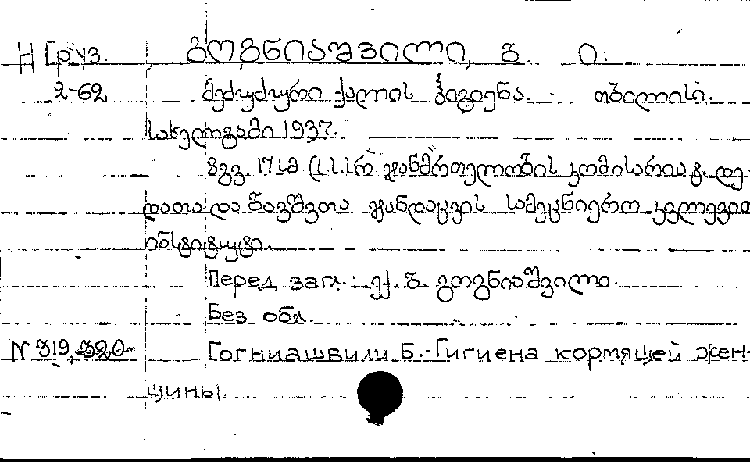 Н Груз. გოგნიაშვილი, ბ. ი.
2-62 მეძუძური ქალის ჰიგიენა. თბილისი.
სახელგამი 1937.
8გვ. 17სმ (ს.ს.ს.რ. ჯანმრთელობის კომისარიატ. დე-
დათა და ბავშვთა ჯანდაცვის სამეცნიერო კვლევითი
ინსტიტუტი.
Перед загл.: ექ. ბ. გოგნიაშვილი
Без обл.
N 319,320 Гогниашвили Б.-Гигиена кормящей жен-
щины.